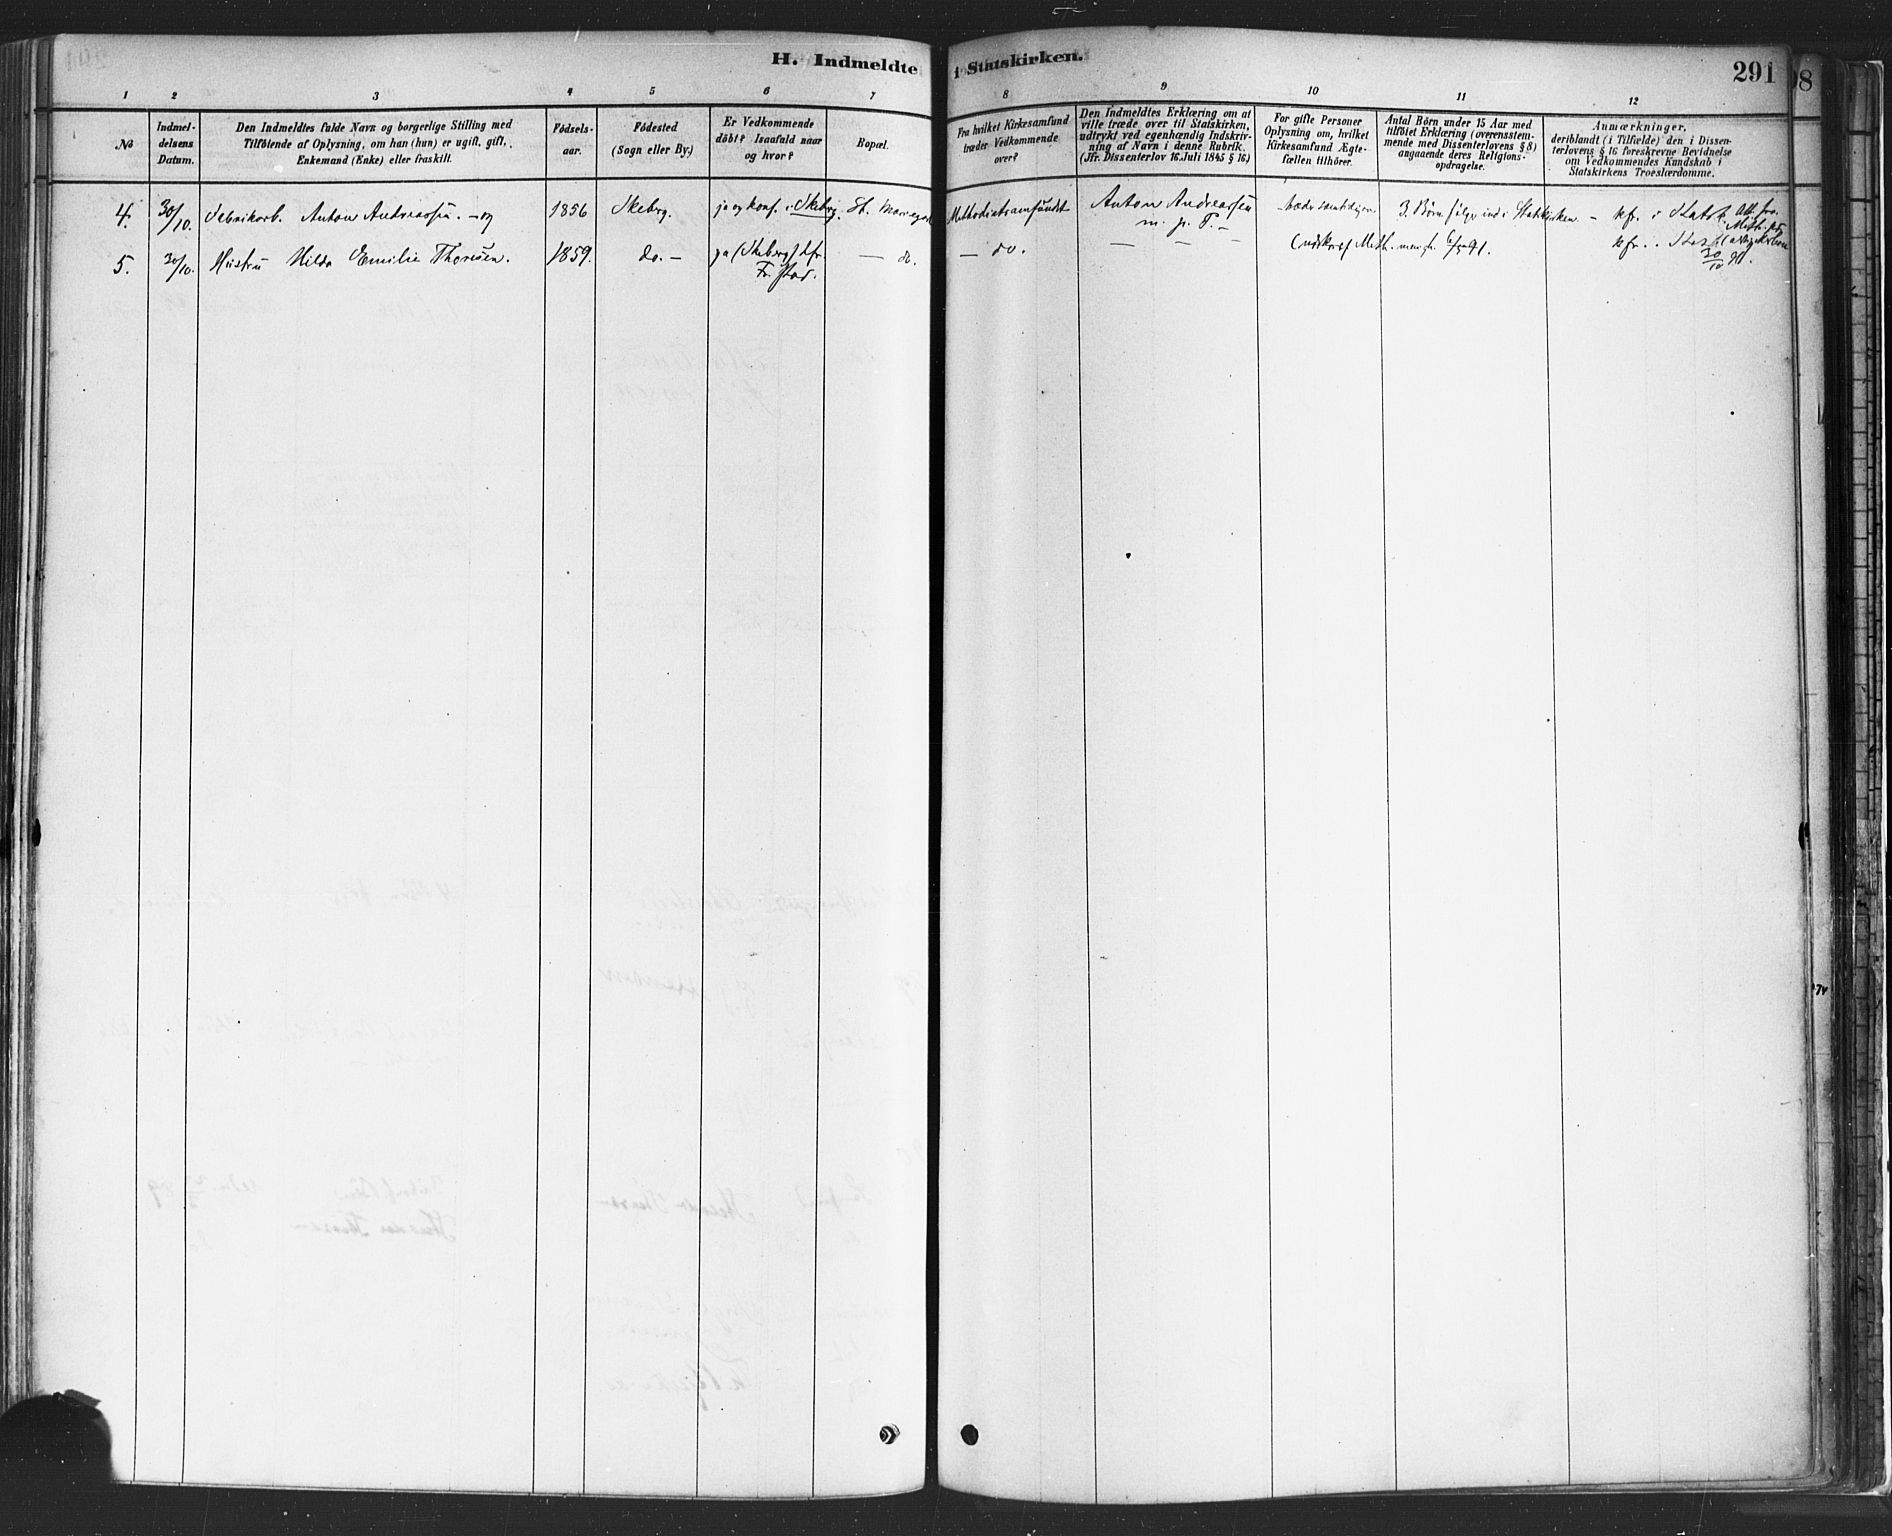 H. Indmeldte i Statskirken.
291
1 2 3 4 5 6 7 8 9 10 11 12
No
Indmel-
delsens
Datum.
Den Indmeldtes fulde Navn og borgerlige Stilling med
Tilföiende af Oplysning, om han (hun) er ugift, gift,
Enkemand (Enke) eller fraskilt.
Födsels-
aar.
Födested
(Sogn eller By.)
Er Vedkommende
döbt? Isaafald naar
og hvor?
Bopæl.
Fra hvilket Kirkesamfund
træder Vedkommende
over?
Den Indmeldtes Erklæring om at
ville træde over til Statskirken,
udtrykt ved egenhændig Indskriv-
ning af Navn i denne Rubrik.
(Jfr. Dissenterlov 16. Juli 1845 § 16.)
For gifte Personer
Oplysning om, hvilket
Kirkesamfund Ægte-
fællen tilhörer.
Antal Börn under 15 Aar med
tilföiet Erklæring (overensstem-
mende med Dissenterlovens § 8)
angaaende deres Religions-
opdragelse.
Anmærkninger,
deriblandt (i Tilfælde) den i Dissen-
terlovens § 16 foreskrevne Bevidnelse
om Vedkommendes Kundskab i
Statskirkens Troeslærdomme.
4. 30/10. Fabrikarb. Anton Andreassen. - og 1856 Skeberg. ja og konf. i Skeberg. St. Methodistsamfundet Anton Andreassen 3 Börn fölge ind i Statskirken - kfr. i
m. p. P. -
5. 30/10. Hustru Hilda Emilie Thoresen. 1859. do. - ja (Skeberg) kfr. - do. - do. - - - kfr. i
Fr.stad.
8